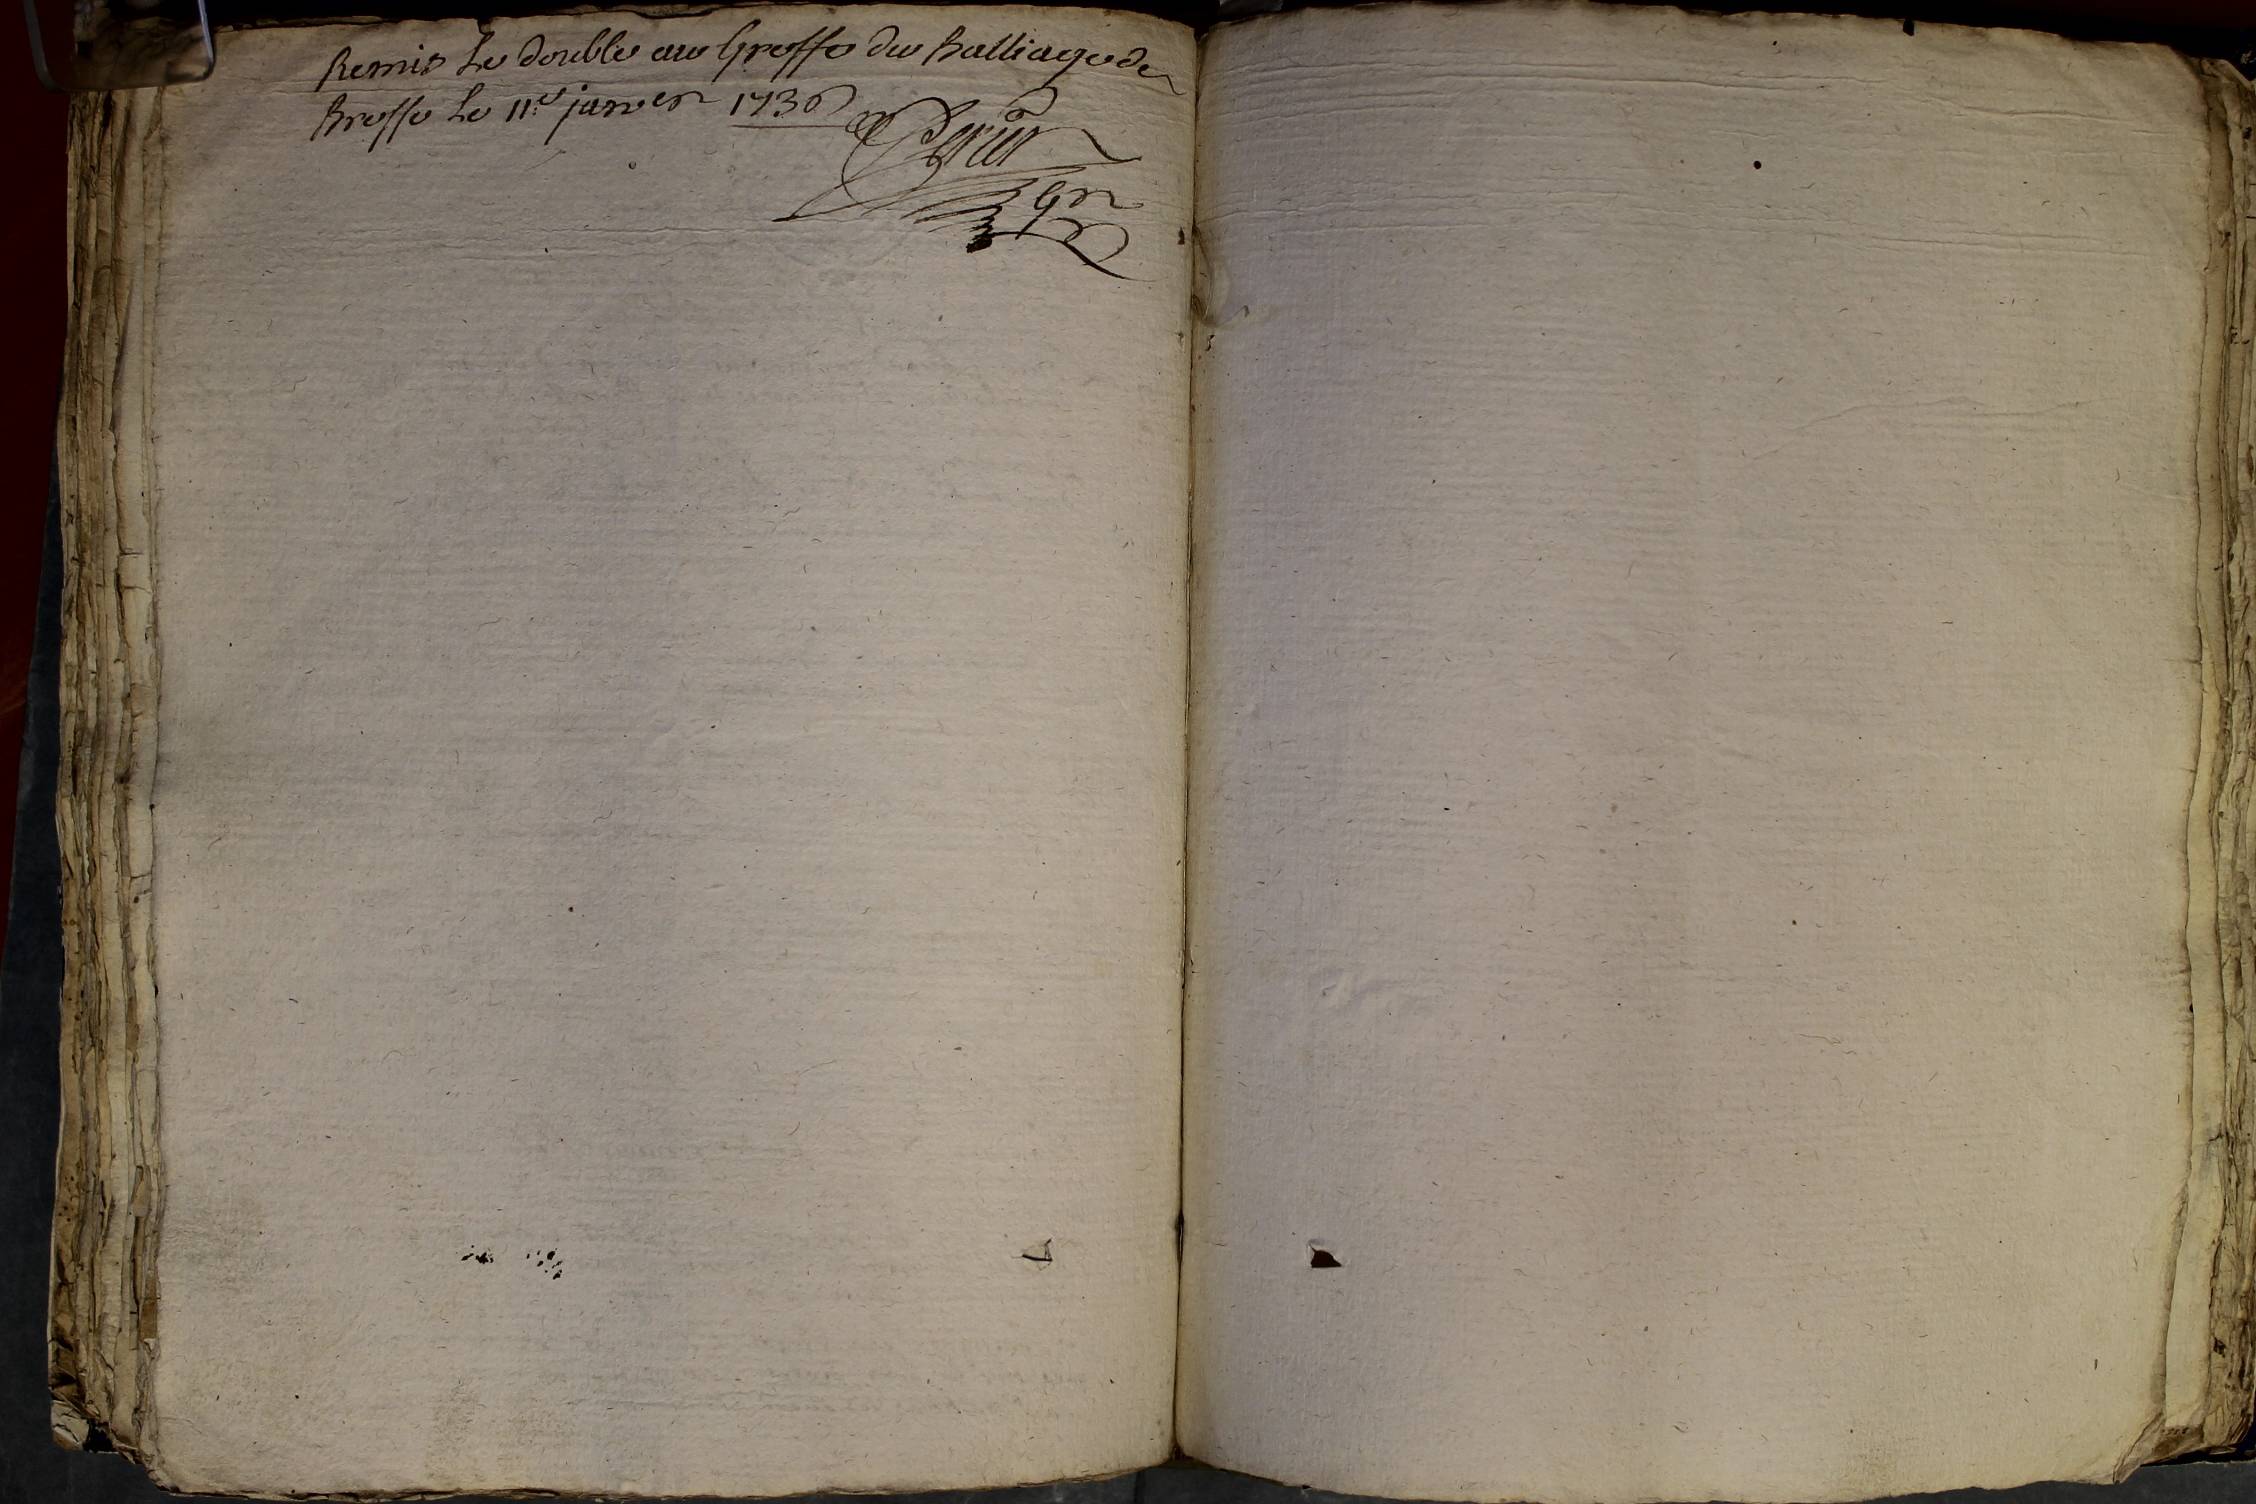 Remis Le double au Greffe du Balliage de
Bresse Le 11.e janvier 1736